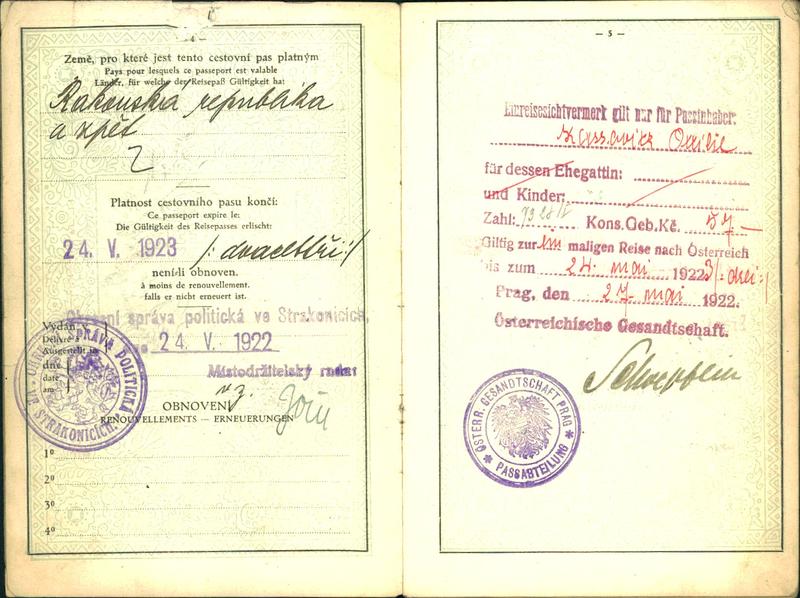 — 4 —
Země, pro které jest tento cestovní pas platným
Pays pour lesquels ce passeport est valable
Länder, für welche der Reisepaß Gültigkeit hat
Rakouská republika
a zpět
Platnost cestovního pasu končí:
Ce passeport expire le:
Die Gültigkeit des Reisepasses erlischt:
24. V. 1923 /: dvacettři :/
není-li obnoven.
à moins de renouvellement.
falls er nicht erneuert ist.
Okresní správa politická ve Strakonicích,
Vydán
Délivré à
Ausgestellt in
24. V. 1922
dne
date
am
Místodržitelský rada:
v. z.
OBNOVENÍ
RENOUVELLEMENTS — ERNEUERUNGEN
OKRESNÍ SPRÁVA POLITICKÁ
STRAKONICÍCH
1º
2º
3º
4º
— 5 —
Einreisesichtvermerk gilt nur für Passinhaber:
für dessen Ehegattin:
und Kinder:
Zahl: Kons.Geb.Kč. 57 —
Giltig zur maligen Reise nach Österreich
bis zum 24. mai 1923 /: drei :/
Prag, den 27 mai 1922.
Österreichische Gesandtschaft.
ÖSTERR. GESANDTSCHAFT PRAG
* PASSABTEILUNG *